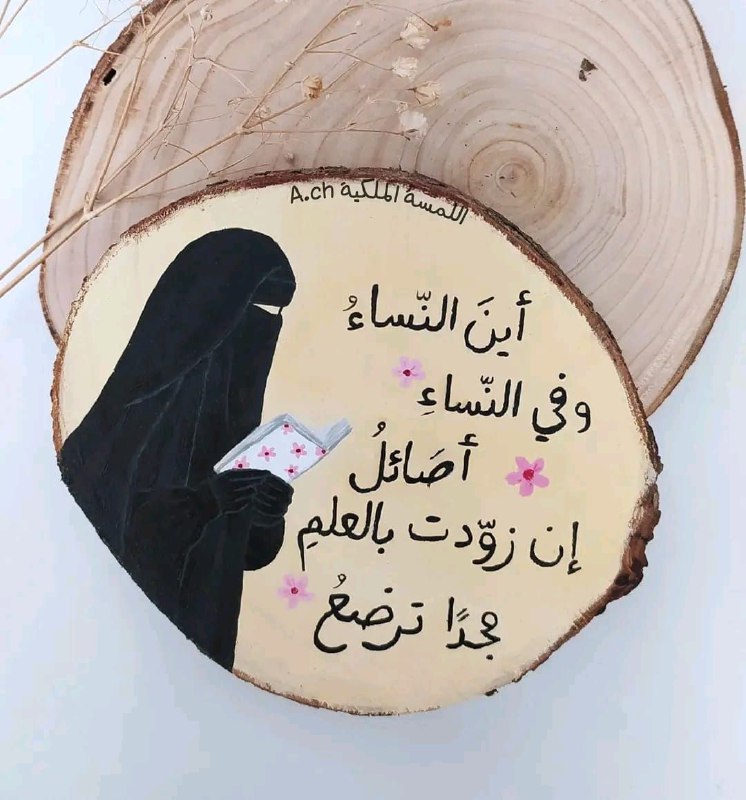 اللمسة الملكية A.ch
أينَ النّساءُ
وفي النّساءِ
أصَائلُ
إن زوّدت بالعلمِ
مجدًا ترضعُ